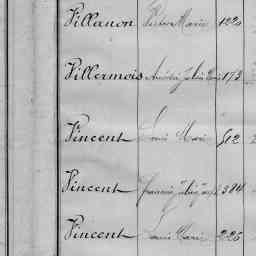 Villanon Victor Marie 122
Villermois Amédée Julien 173
Vincent Louis Marie 512
Vincent Francois Julien 384
Vincent Louis Marie 225